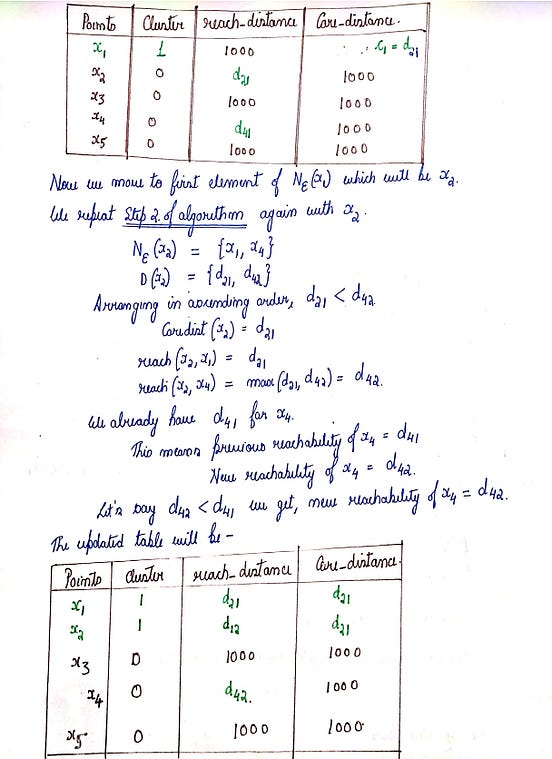 Points Cluster reach-distance Core-distance.
x₁ 1 1000 c₁ = d₂₁
x₂ 0 d₂₁ 1000
x₃ 0 1000 1000
x₄ 0 d₄₁ 1000
x₅ 0 1000 1000
Now we move to first element of Nε(x₁) which will be x₂.
We repeat Step 2 of algorithm again with x₂.
Nε(x₂) = {x₁, x₄}
D(x₂) = {d₂₁, d₄₂}
Arranging in ascending order, d₂₁ < d₄₂
Coredist (x₂) = d₂₁
reach (x₂, x₁) = d₂₁
reach (x₂, x₄) = max(d₂₁, d₄₂) = d₄₂.
We already have d₄₁ for x₄.
This means previous reachability of x₄ = d₄₁
New reachability of x₄ = d₄₂.
Let's say d₄₂ < d₄₁ we get, new reachability of x₄ = d₄₂.
The updated table will be -
Points Cluster reach-distance Core-distance.
x₁ 1 d₂₁ d₂₁
x₂ 1 d₁₂ d₂₁
x₃ 0 1000 1000
x₄ 0 d₄₂. 1000
x₅ 0 1000 1000